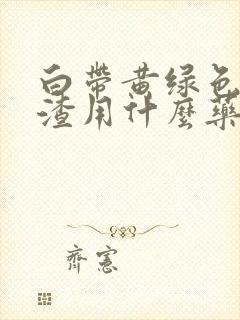 白帶黄绿色
渣用什麼藥
齊憲